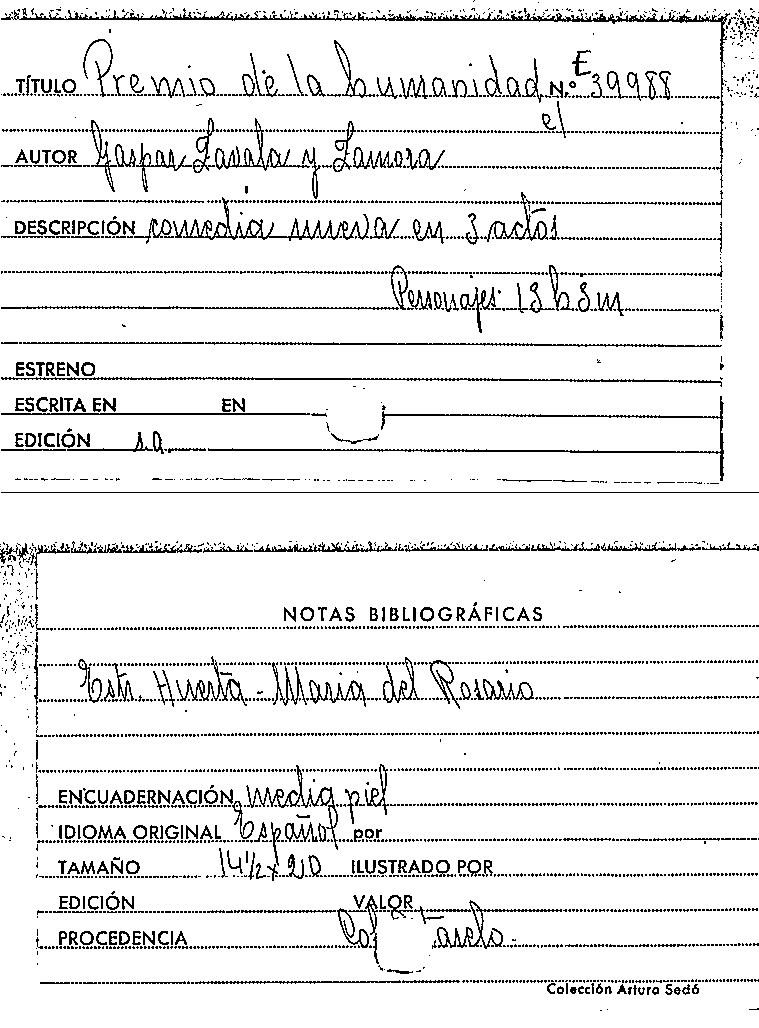 TÍTULO Premio de la humanidad N.º E 39988
el
AUTOR Gaspar Zavala y Zamora
DESCRIPCIÓN comedia nueva en 3 actos
Personajes: 13 h 3 m
ESTRENO
ESCRITA EN EN
EDICIÓN s.a.
NOTAS BIBLIOGRÁFICAS
Estr. Huerta - Maria del Rosario
ENCUADERNACIÓN media piel
IDIOMA ORIGINAL Español por
TAMAÑO 14½ x 20 ILUSTRADO POR
EDICIÓN VALOR
PROCEDENCIA
Colección Arturo Sedó